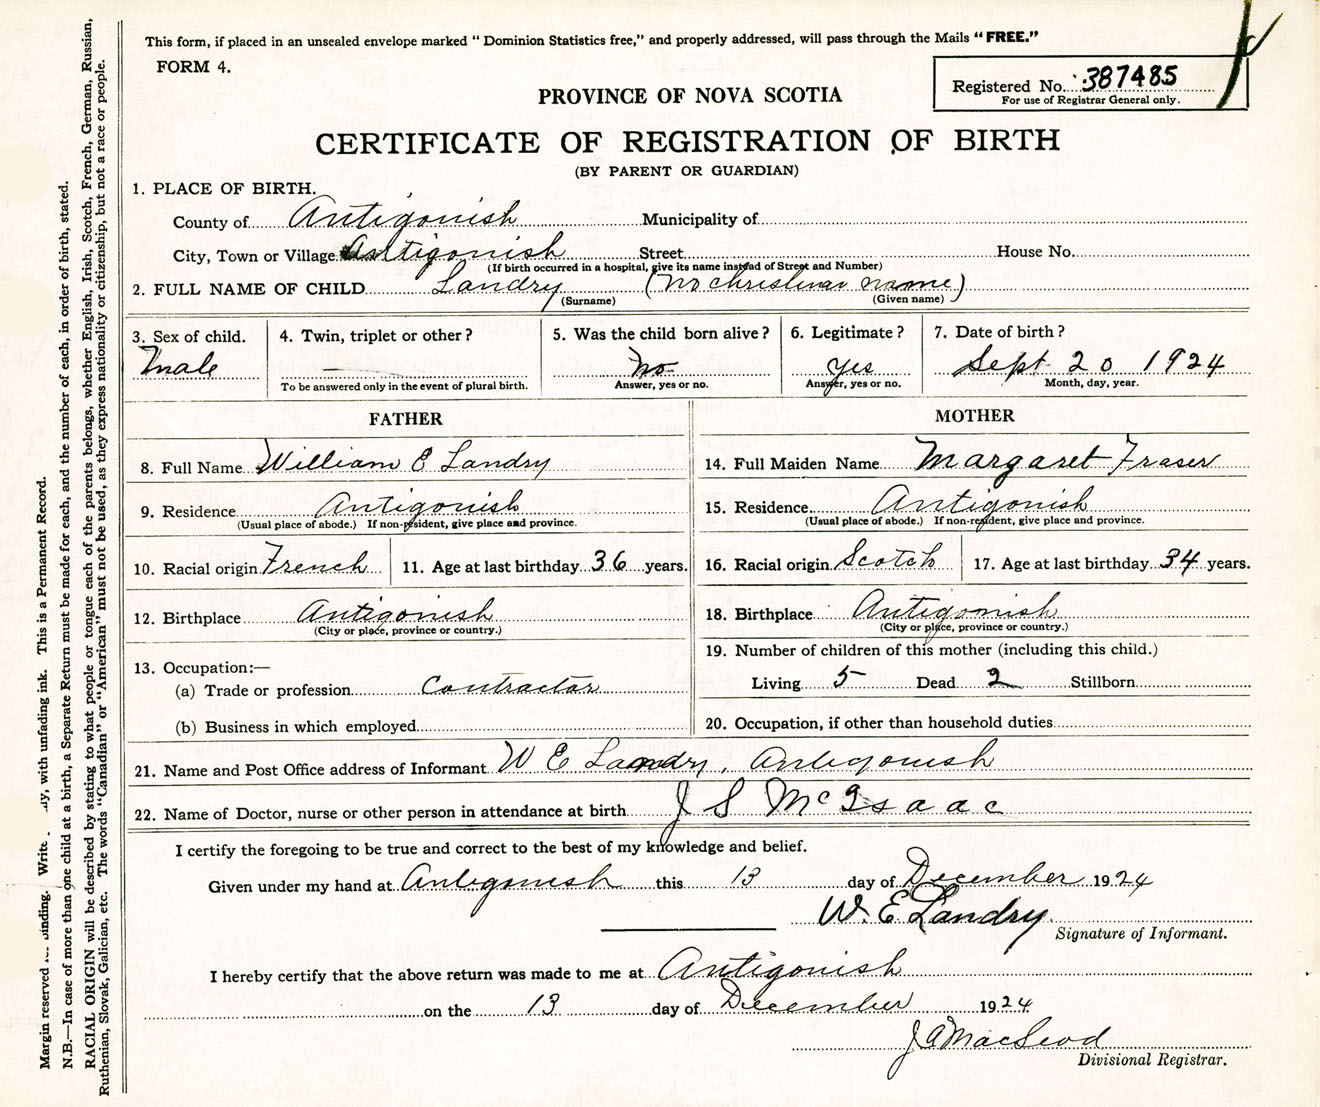 This form, if placed in an unsealed envelope marked "Dominion Statistics free," and properly addressed, will pass through the Mails "FREE."
FORM 4.
Registered No. 387485
For use of Registrar General only.
PROVINCE OF NOVA SCOTIA
CERTIFICATE OF REGISTRATION OF BIRTH
(BY PARENT OR GUARDIAN)
1. PLACE OF BIRTH.
County of Antigonish Municipality of
City, Town or Village Antigonish Street House No.
(If birth occurred in a hospital, give its name instead of Street and Number)
2. FULL NAME OF CHILD Landry (no christian name)
(Surname) (Given name)
3. Sex of child. Male
4. Twin, triplet or other? —
To be answered only in the event of plural birth.
5. Was the child born alive? No
Answer, yes or no.
6. Legitimate? Yes
Answer, yes or no.
7. Date of birth? Sept 20 1924
Month, day, year.
FATHER
8. Full Name William E Landry
9. Residence Antigonish
(Usual place of abode.) If non-resident, give place and province.
10. Racial origin French 11. Age at last birthday 36 years.
12. Birthplace Antigonish
(City or place, province or country.)
13. Occupation:—
(a) Trade or profession Contractor
(b) Business in which employed
MOTHER
14. Full Maiden Name Margaret Fraser
15. Residence Antigonish
(Usual place of abode.) If non-resident, give place and province.
16. Racial origin Scotch 17. Age at last birthday 34 years.
18. Birthplace Antigonish
(City or place, province or country.)
19. Number of children of this mother (including this child.)
Living 5 Dead 2 Stillborn
20. Occupation, if other than household duties
21. Name and Post Office address of Informant W E Landry, Antigonish
22. Name of Doctor, nurse or other person in attendance at birth J S McIsaac
I certify the foregoing to be true and correct to the best of my knowledge and belief.
Given under my hand at Antigonish this 13 day of December 1924
W. E Landry
Signature of Informant.
I hereby certify that the above return was made to me at Antigonish
on the 13 day of December 1924
J A MacLeod
Divisional Registrar.
Margin reserved binding. Write with unfading ink. This is a Permanent Record.
N.B.—In case of more than one child at a birth, a Separate Return must be made for each, and the number of each, in order of birth, stated.
RACIAL ORIGIN will be described by stating to what people or tongue each of the parents belongs, whether English, Irish, Scotch, French, German, Russian,
Ruthenian, Slovak, Galician, etc. The words "Canadian" or "American" must not be used, as they express nationality or citizenship, but not a race or people.